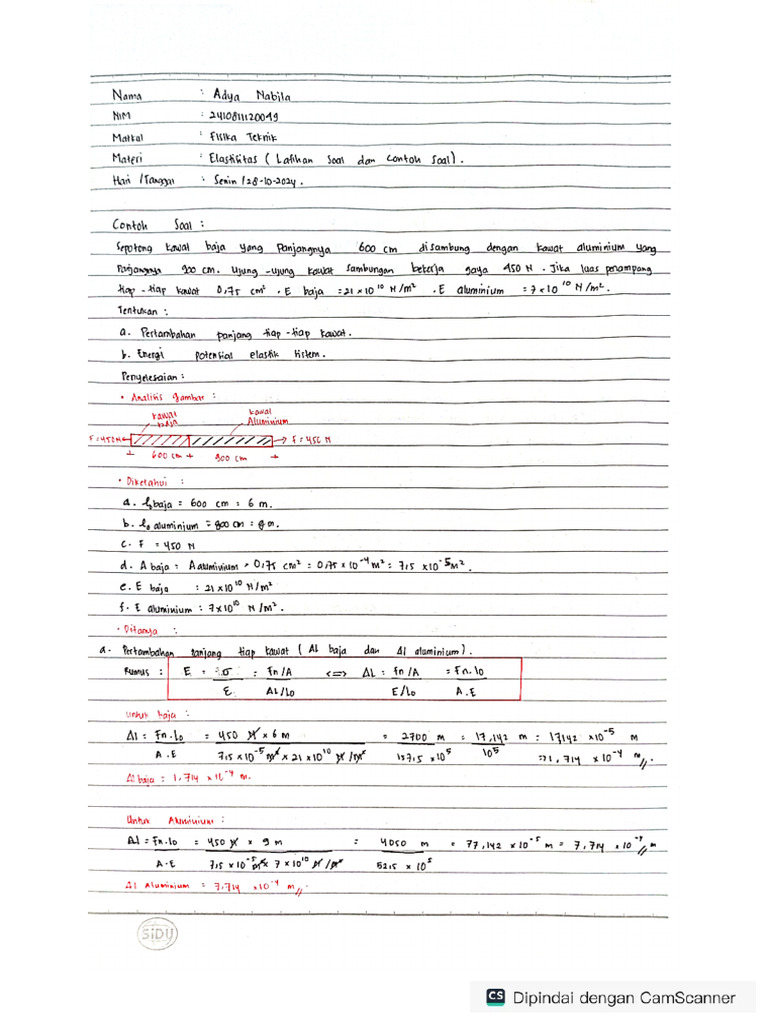 Nama : Adya Nabila
NIM : 2410811120049
Matkul : Fisika Teknik
Materi : Elastisitas (Latihan Soal dan Contoh Soal).
Hari /Tanggal : Senin / 28-10-2024.
Contoh Soal :
Sepotong kawat baja yang Panjangnya 600 cm disambung dengan kawat aluminium yang
Panjangnya 900 cm. Ujung-ujung kawat sambungan bekerja gaya 450 N. Jika luas penampang
tiap-tiap kawat 0,75 cm². E baja = 21 x 10¹⁰ N/m². E aluminium = 7 x 10¹⁰ N/m².
Tentukan :
a. Pertambahan panjang tiap-tiap kawat.
b. Energi potensial elastik sistem.
Penyelesaian :
• Analisis gambar :
kawat baja
kawat Aluminium
F = 450 N
F = 450 N
600 cm
900 cm
• Diketahui :
a. l₀ baja = 600 cm = 6 m.
b. l₀ aluminium = 900 cm = 9 m.
c. F = 450 N
d. A baja = A aluminium = 0,75 cm² = 0,75 x 10⁻⁴ m² = 7,5 x 10⁻⁵ m².
e. E baja : 21 x 10¹⁰ N/m²
f. E aluminium : 7 x 10¹⁰ N/m².
• Ditanya :
a. Pertambahan panjang tiap kawat (Δl baja dan Δl aluminium).
Rumus : E = σ / ε = Fn/A / ΔL/Lo <=> ΔL = Fn/A / E/Lo = Fn.lo / A.E
Untuk baja :
Δl = Fn.lo / A.E = 450 N x 6 m / 7,5 x 10⁻⁵ m² x 21 x 10¹⁰ N/m² = 2700 m / 157,5 x 10⁵ = 17,142 m / 10⁵ = 17,142 x 10⁻⁵ m
=> 1,714 x 10⁻⁴ m //.
Δl baja = 1,714 x 10⁻⁴ m.
Untuk Aluminium :
Δl = Fn.lo / A.E = 450 N x 9 m / 7,5 x 10⁻⁵ m² x 7 x 10¹⁰ N/m² = 4050 m / 52,5 x 10⁵ = 77,142 x 10⁻⁵ m = 7,714 x 10⁻⁴ // m
Δl Aluminium = 7,714 x 10⁻⁴ m //.
SiDU
CS Dipindai dengan CamScanner